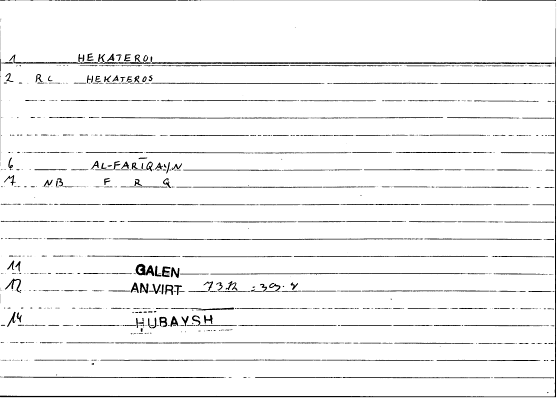 1 HEKATEROI
2 RL HEKATEROS
6 AL-FARĪQAYN
7 NB F R Q
11 GALEN
12 AN.VIRT
14 ḤUBAYSH